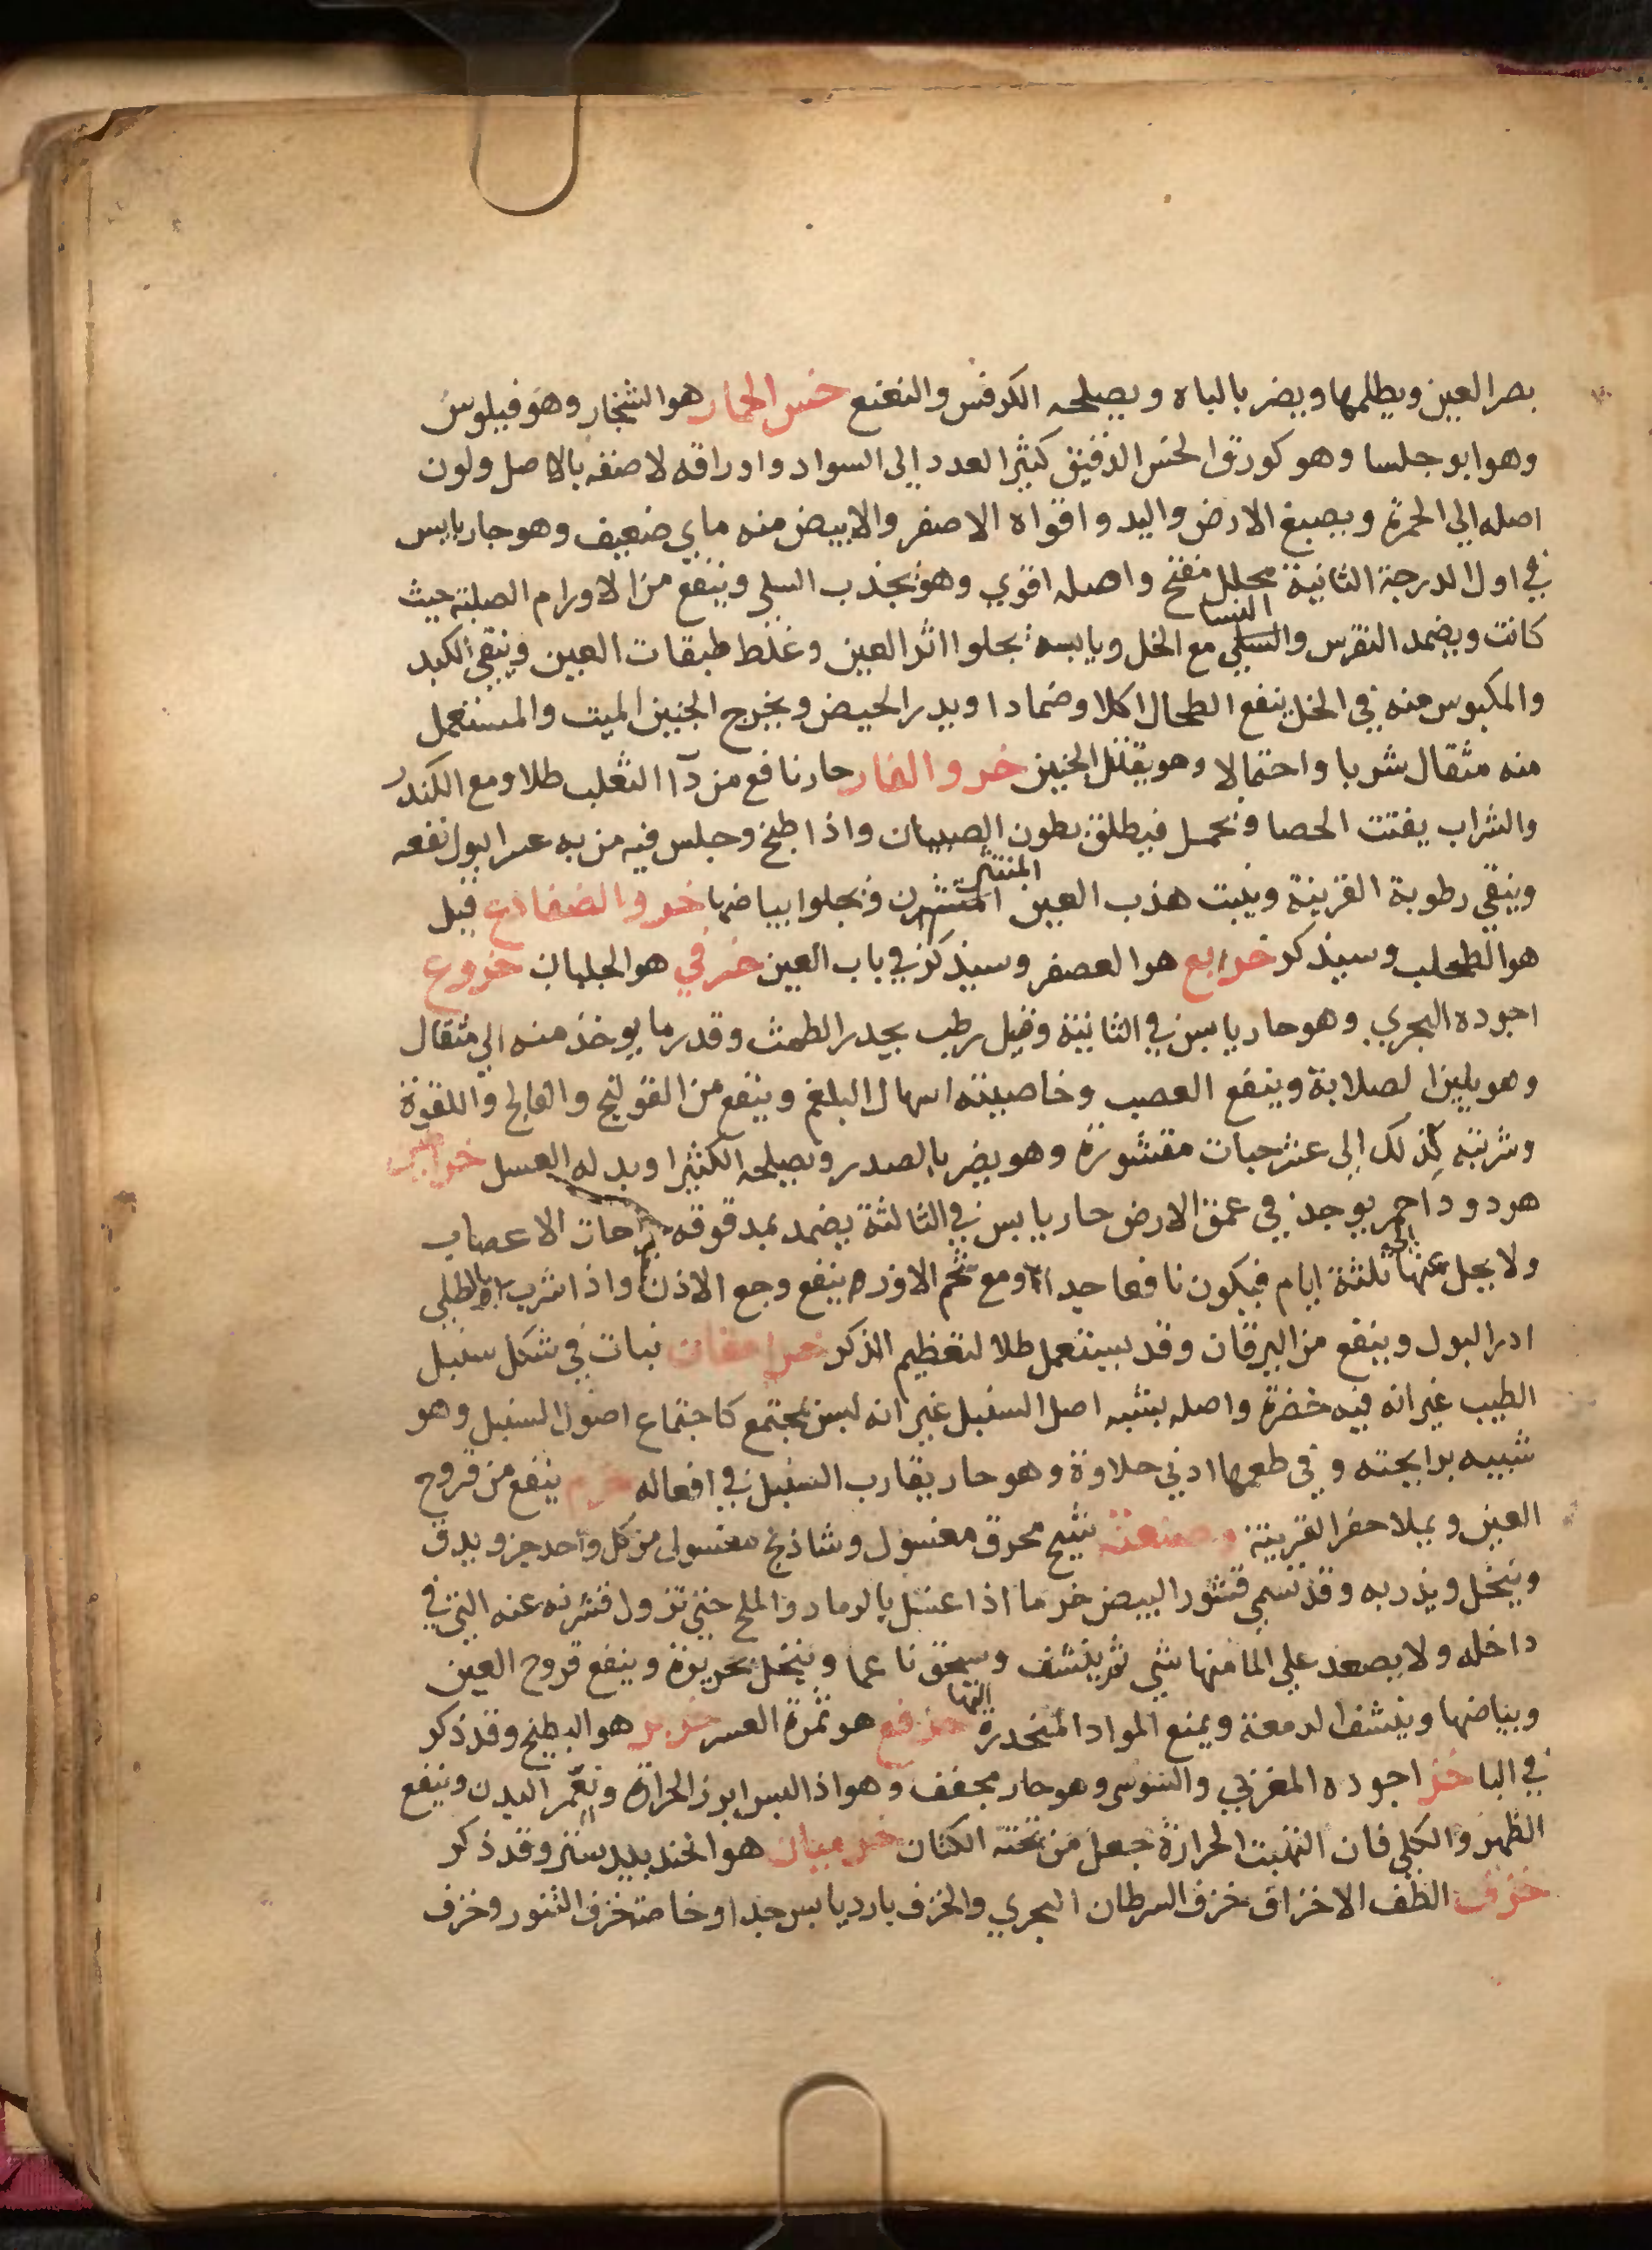 بصر العين ويظلمها ويضر بالباه ويصلحه الكرفس والنعنع خس الحمار هو الشنجار وهو فيلوس
وهو ابو جلسا وهو كورق الخس الدقيق كثير العدد الى السواد واوراقه لاصقه بالاصل ولون
اصله الي الحمرة ويصبغ الارض واليد واقواه الاصفر والابيض منه ماي ضعيف وهو حار يابس
في اول الدرجة الثانية محلل مفتح واصله اقوي وهو يجذب السلي وينفع من الاورام الصلبة حيث
كانت ويضمد النقرس والنسا مع الخل ويابسه يجلوا اثر العين وغلظ طبقات العين وينقي الكبد
والمكبوس منه في الخل ينفع الطحال اكلا وضمادا ويدر الحيض ويخرج الجنين الميت والمستعمل
منه مثقال شربا واحتمالا وهو يقتل الجنين خرو الفار حار نافع من دآ الثعلب طلا ومع الكندر
والشراب يفتت الحصا ويحمل فيطلق بطون الصبيان واذا طبخ وجلس فيه من به عسر البول نفعه
وينقي رطوبة القرنية وينبت هدب العين المنتثر ويجلوا بياضها خرو الضفادع قيل
هو الطحلب وسيذكر خرابع هو العصفر وسيذكر في باب العين خرفي هو الجلبان خروع
اجوده البحري وهو حار يابس في الثانية وقيل رطب يدر الطمث وقدر ما يوخذ منه الي مثقال
وهو يلين الصلابة وينفع العصب وخاصيته اسهال البلغم وينفع من القولنج والفالج واللقوة
وشربته كذلك الى عشر حبات مقشورة وهو يضر بالصدر ويصلحه الكثيرا وبدله العسل خراطين
هو دود احمر يوجد في عمق الارض حار يابس في الثالثة يضمد بمدقوقه جراحات الاعصاب
ولا يحل عنها الي ثلثة ايام فيكون نافعا جدا ومع شحم الاوز ينفع وجع الاذن واذا شرب بالطلي
ادر البول وينفع من اليرقان وقد يستعمل طلا لتعظيم الذكر نبات في شكل سنبل
الطيب غير انه فيه خضرة واصله يشبه اصل السنبل غير انه ليس بمجتمع كاجتماع اصول السنبل وهو
شبيه برايحته وفي طعمها ادني حلاوة وهو حار يقارب السنبل في افعاله خرم ينفع من قروح
العين ويملا حفر القرنية وصنعته شيح محرق مغسول وشاذنج مغسول من كل واحد جزو يدق
وينخل ويذر به وقد تسمي قشور البيض خرما اذا غسل بالرماد والملح حتي تزول قشرته عنه التي في
داخله ولا يصعد علي الما منها شي ثم ينشف وسحق ناعما وينخل بحريرة وينفع قروح العين
وبياضها وينشف الدمعة ويمنع المواد المنحدرة اليها خرفع هو ثمرة العشر خربز هو البطيخ وقد ذكر
في البا خز اجوده المغربي والسوسي وهو حار مجفف وهو اذا البس ابرز الحرارة وينعم البدن وينفع
الظهر والكلي فان التهبت الحرارة جعل من تحته الكتان خزميان هو الجندبيدستر وقد ذكر
خزف الطف الاخزاف خزف السرطان البحري والخزف بارد يابس جدا وخاصة خزف التنور وخزف